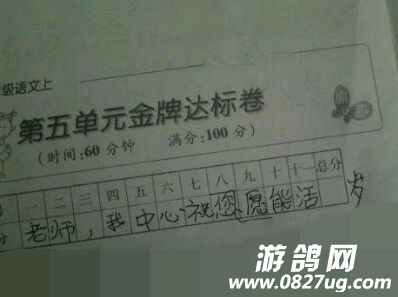 年级语文上
第五单元金牌达标卷
(时间:60分钟 满分:100分)
一 二 三 四 五 六 七 八 九 十 十一 总分
老师,我中心祝您愿能活 岁
游鸽网
www.0827ug.com